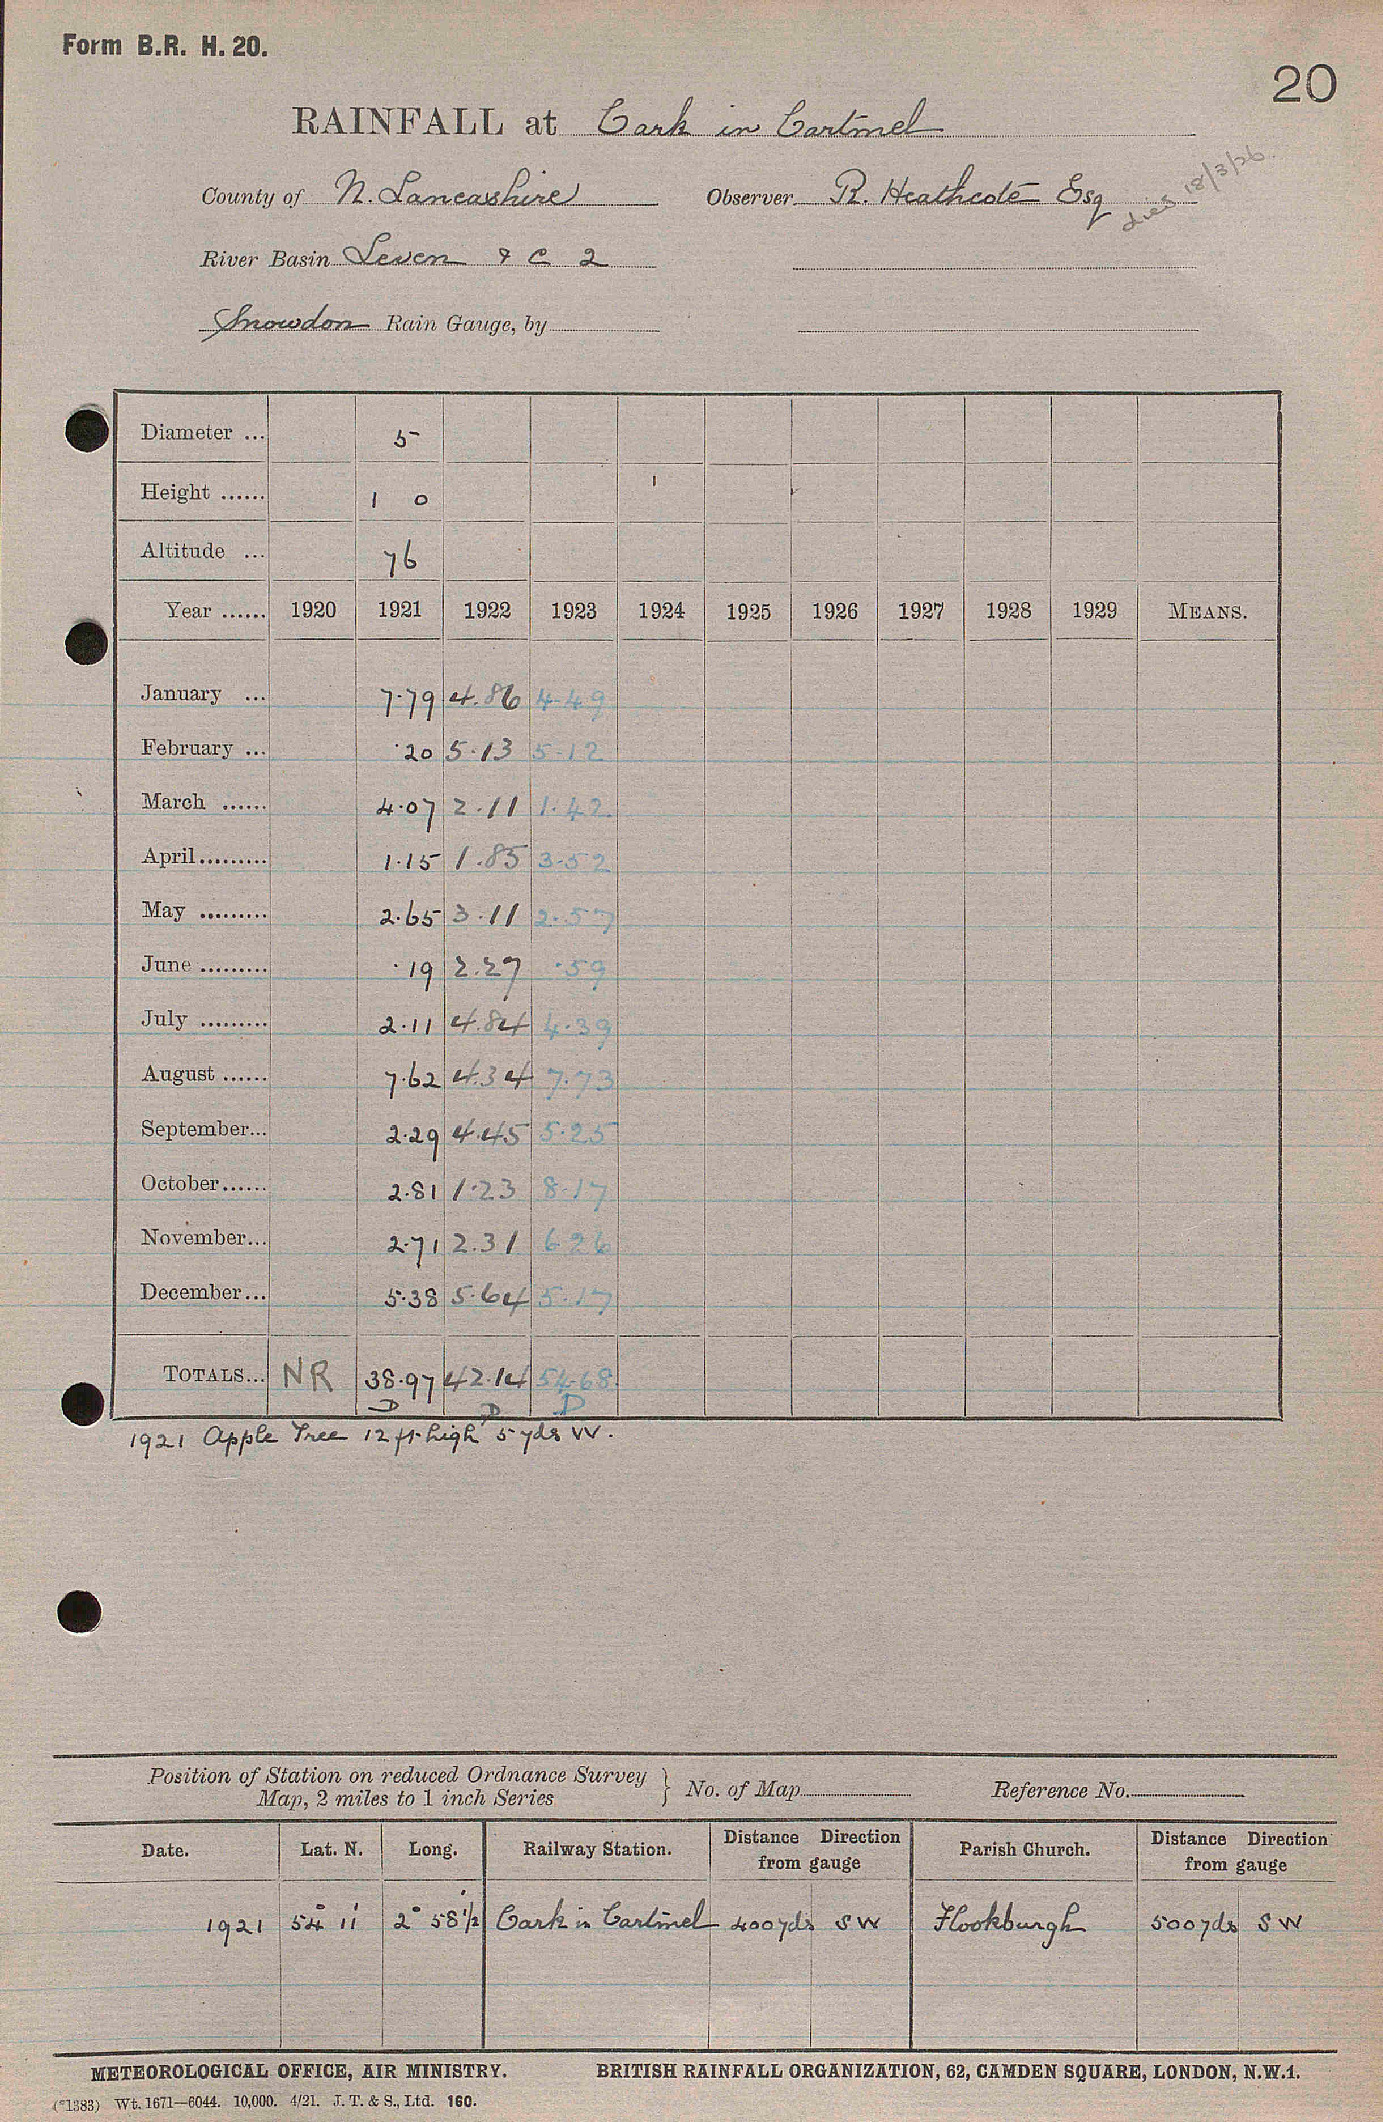 Form B.R. H. 20.
20
RAINFALL at Cark in Cartmel
County of N. Lancashire Observer R. Heathcote Esq dies 18/3/26.
River Basin Leven & C 2
Snowdon Rain Gauge, by
Diameter ... 5
Height ...... 1 0
Altitude ... 76
Year ...... 1920 1921 1922 1923 1924 1925 1926 1927 1928 1929 MEANS.
January ... 7.79 4.86 4.49
February ... .20 5.13 5.12
March ...... 4.07 2.11 1.42
April......... 1.15 1.85 3.52
May ......... 2.65 3.11 2.57
June ......... .19 2.27 .59
July ......... 2.11 4.84 4.39
August ...... 7.62 4.34 7.73
September... 2.29 4.45 5.25
October...... 2.81 1.23 8.17
November... 2.71 2.31 6.26
December... 5.38 5.64 5.17
TOTALS... NR 38.97 42.14 54.68
D D D
1921 Apple Tree 12 ft. high 5 yds W.
Position of Station on reduced Ordnance Survey
Map, 2 miles to 1 inch Series } No. of Map Reference No.
Date. Lat. N. Long. Railway Station. Distance Direction from gauge Parish Church. Distance Direction from gauge
1921 54° 11' 2° 58'½ Cark in Cartmel 400 yds SW Flookburgh 500 yds SW
METEOROLOGICAL OFFICE, AIR MINISTRY. BRITISH RAINFALL ORGANIZATION, 62, CAMDEN SQUARE, LONDON, N.W.1.
(*1383) Wt. 1671—6044. 10,000. 4/21. J. T. & S., Ltd. 160.